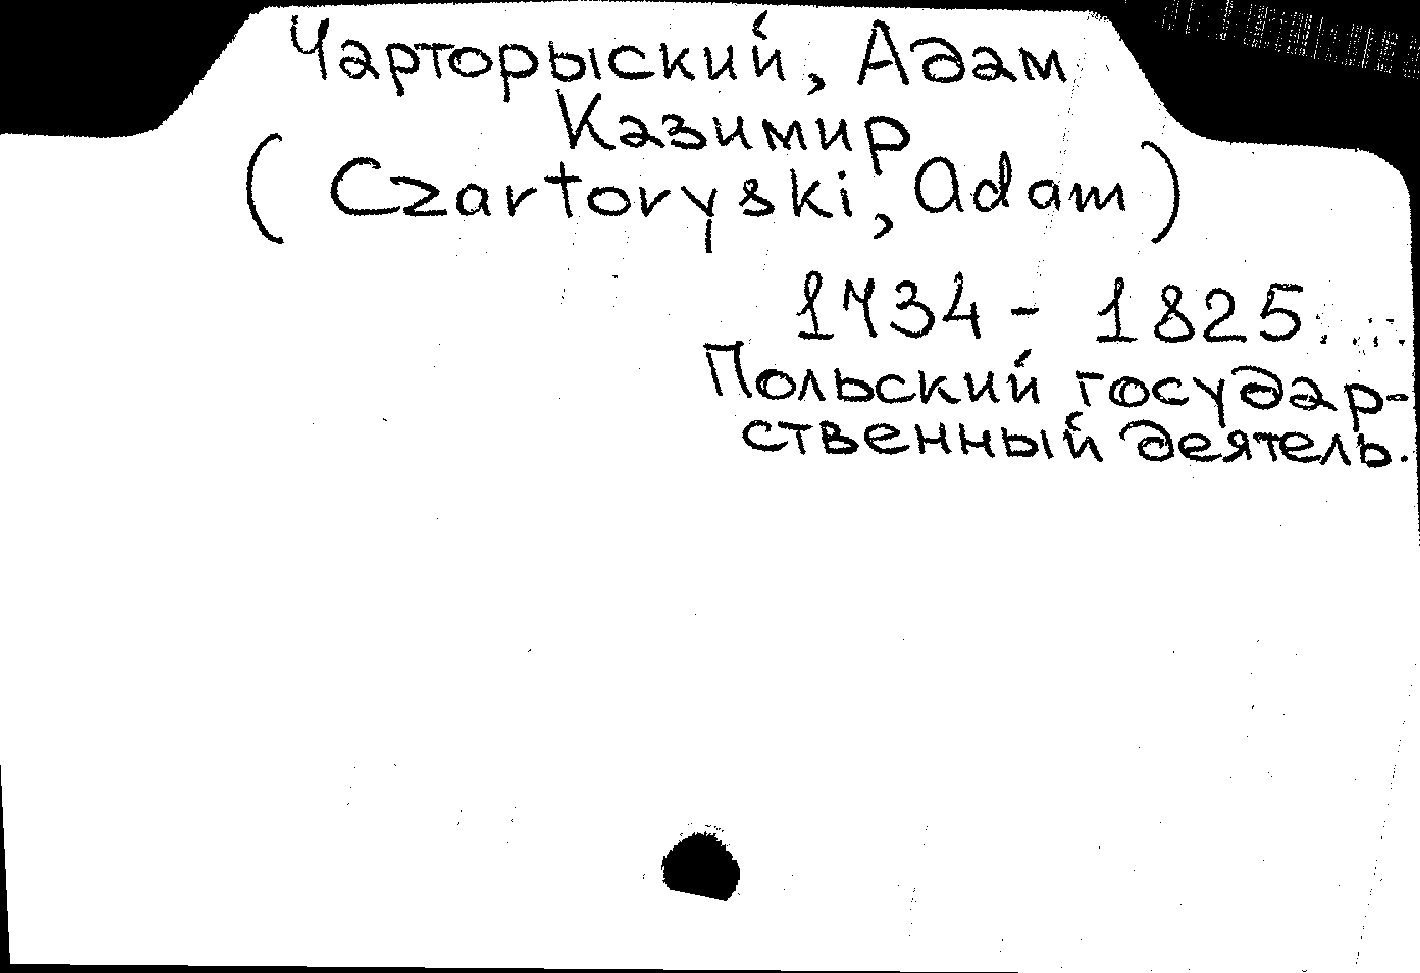 Чарторыский, Адам
Казимир
(Czartoryski, Adam)
1734 - 1825
Польский государ-
ственный деятель.